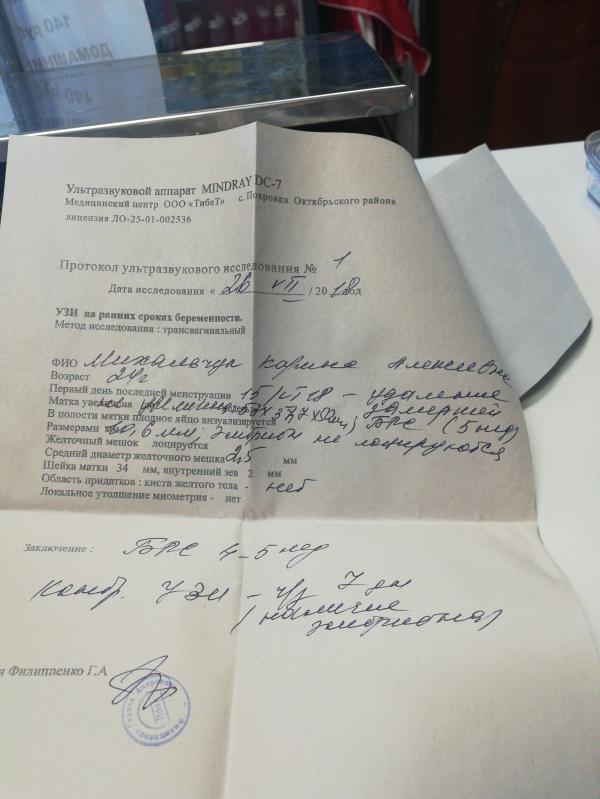 140 руб
ДОМАШНИ
140
Ультразвуковой аппарат MINDRAY DC-7
Медицинский центр ООО «ТибеТ» с. Покровка Октябрьского района
лицензия ЛО-25-01-002536
Протокол ультразвукового исследования № 1
Дата исследования « 26 VII / 2018 год
УЗИ на ранних сроках беременности.
Метод исследования : трансвагинальный
ФИО Михальчук Карина Алексеевна
Возраст 24г
Первый день последней менструации 15/VI 18 -
Матка увеличена
В полости матки плодное яйцо визуализируется БРС (5 нед)
Размерами 6 мм; эмбрион не лоцируется
Желточный мешок лоцируется
Средний диаметр желточного мешка 2,5 мм
Шейка матки 34 мм, внутренний зев 2 мм
Область придатков : киста желтого тела - нет
Локальное утолщение миометрия - нет
Заключение : БРС 4-5 нед
Контр. УЗИ - ч/з 7 дн
(наличие
эмбриона)
Филиппенко Г.А